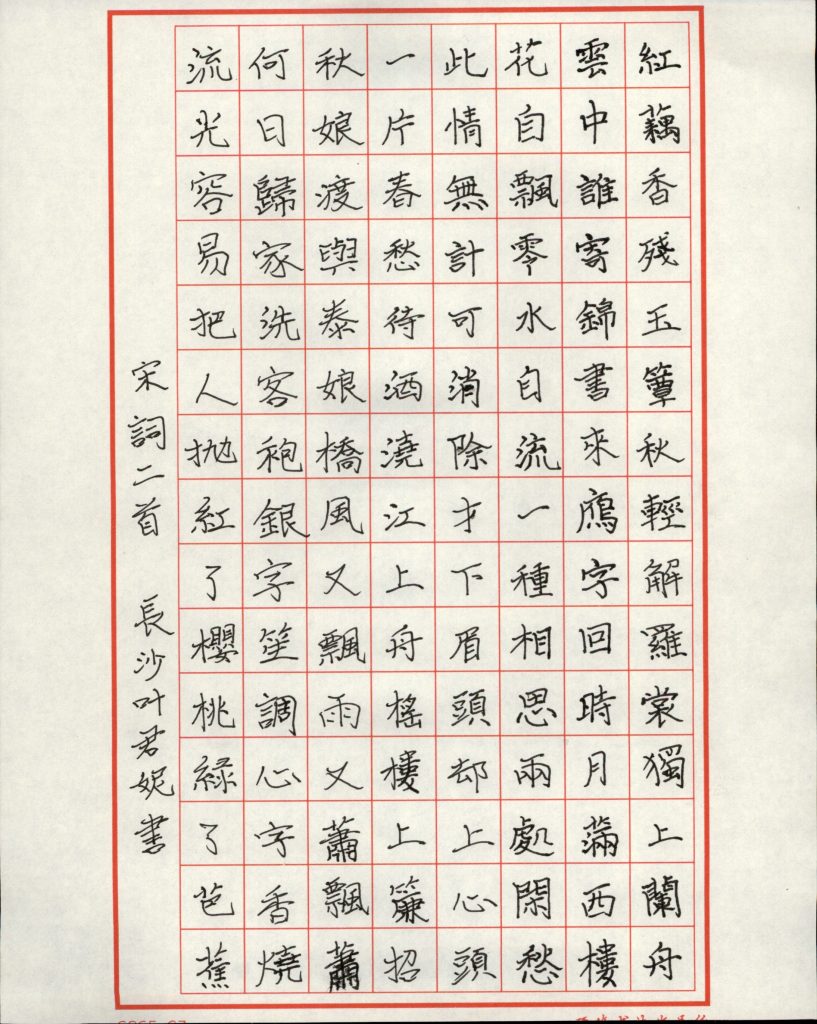 紅藕香殘玉簟秋輕解羅裳獨上蘭舟
雲中誰寄錦書來鴈字回時月滿西樓
花自飄零水自流一種相思兩處閑愁
此情無計可消除才下眉頭却上心頭
一片春愁待酒澆江上舟搖樓上簾招
秋娘渡與泰娘橋風又飄雨又蕭飄蕭
何日歸家洗客袍銀字笙調心字香燒
流光容易把人抛紅了櫻桃緑了芭蕉
宋詞二首 長沙叶君妮書